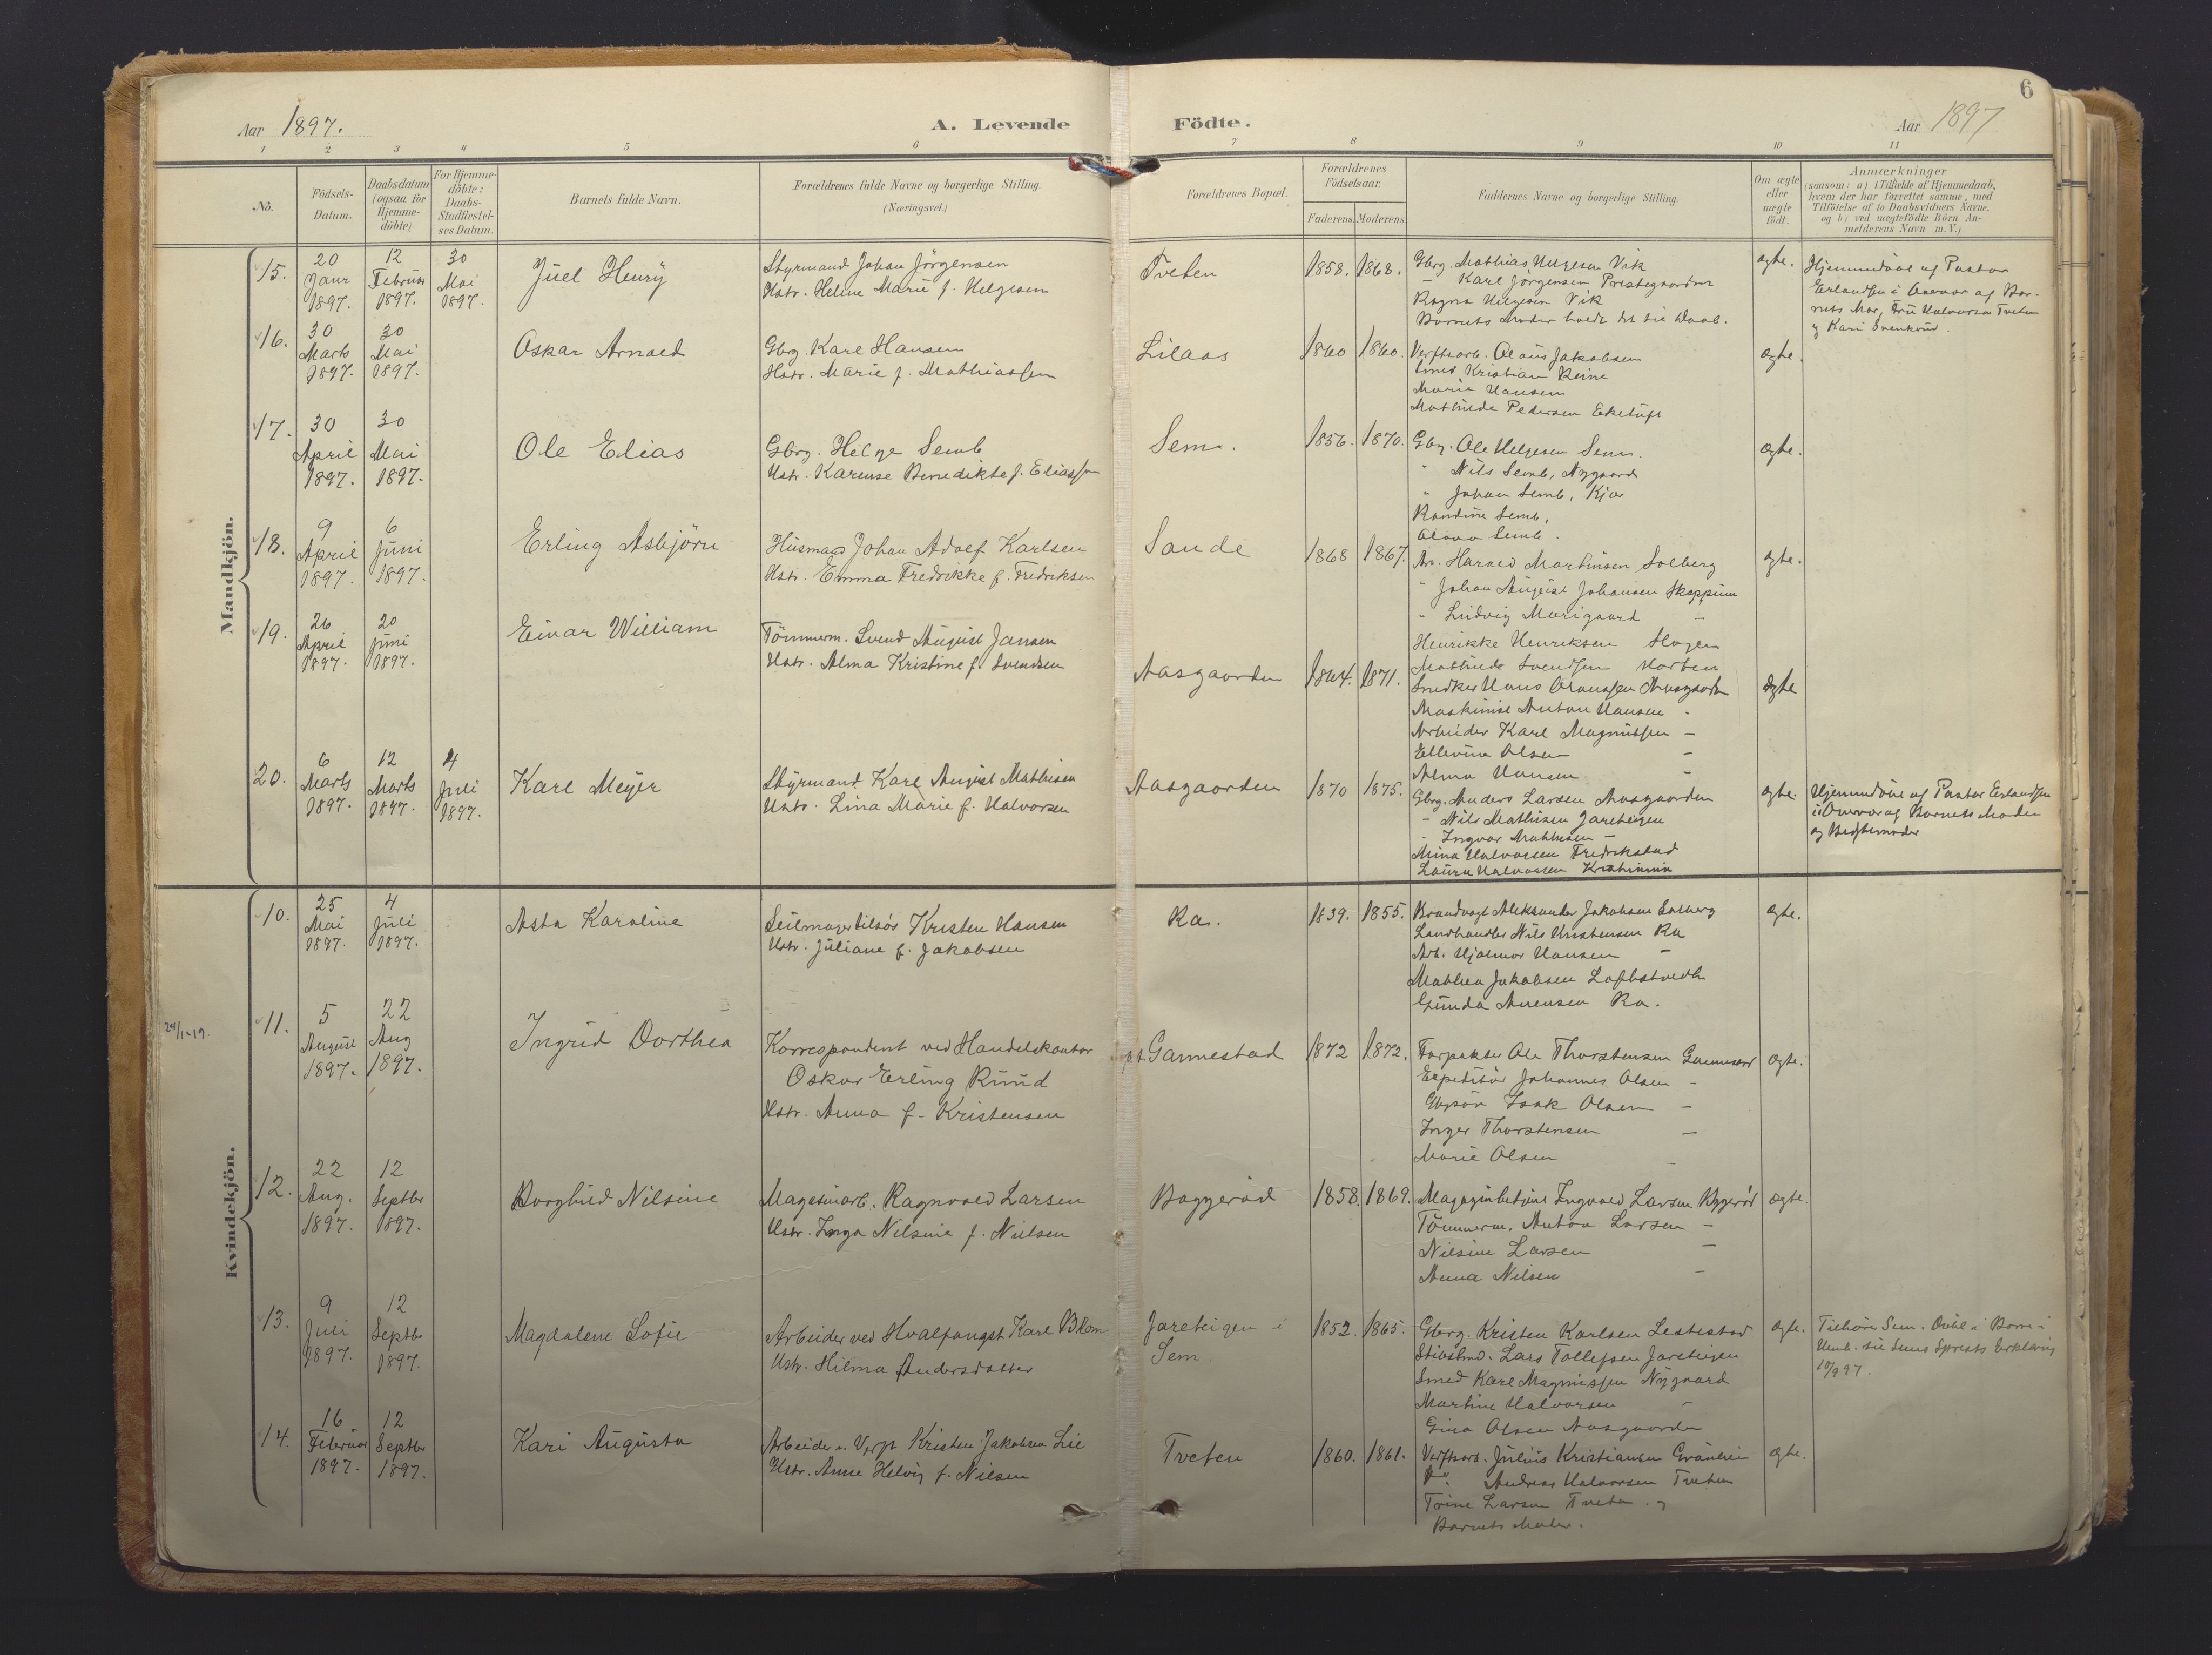 6
Aar 1897.
A. Levende Födte.
Aar 1897
1 2 3 4 5 6 7 8 9 10 11
No.
Födsels-Datum.
Daabsdatum (ogsaa for Hjemme-döbte)
For Hjemme-döbte: Daabs-Stadfæstel-ses Datum.
Barnets fulde Navn.
Forældrenes fulde Navne og borgerlige Stilling.
(Næringsvei.)
Forældrenes Bopæl.
Forældrenes Födselsaar.
Faderens. Moderens.
Faddernes Navne og borgerlige Stilling.
Om ægte eller uægte födt.
Anmærkninger
(saasom: a) i Tilfælde af Hjemmedaab,
hvem der har forrettet samme, med
Tilföielse af to Daabsvidners Navne,
og b) ved uægtefödte Börn An-
melderens Navn m. V.)
Mandkjön.
15. 20 Janr 1897. 12 Februar 1897. 30 Mai 1897.
Juel Henry
Styrmand Johan Jörgensen
Hstr. Heline Marie f. Helgesen
Tveten
1858. 1868.
Gbrg. Mathias Helgesen Vik
– Karl Jörgensen Prestegaarden
Ragna Helgesen Vik
Barnets Moder holdt det til Daab.
ægte.
Hjemmedöbt af Pastor
Erlandsen i Overvær af Bar-
nets Mor, Fru Halvorsen Tveten
og Kari
16. 30 Marts 1897. 30 Mai 1897.
Oskar Arnold
Gbrg. Karl Hansen
Hstr. Marie f. Mathiassen
Lilaas
1860 1860.
Verftsarb. Olaus Jakobsen
Smed Kristian Reine
Marie Hansen
Mathilde Pedersen
ægte.
17. 30 April 1897. 30 Mai 1897.
Ole Elias
Gbrg. Helge Semb
Hstr. Karense Benedikte f. Eliassen
Sem.
1856. 1870.
Gbrg. Ole Helgesen Sem.
" Nils Semb, Nygaard
" Johan Semb, Kjær
Randine Semb,
Olava Semb.
ægte.
18. 9 April 1897. 6 Juni 1897.
Erling Asbjörn
Husmand Johan Adolf Karlsen
Hstr. Emma Fredrikke f. Fredriksen
Sande
1868 1867.
Arb. Harald Martinsen Solberg
" Johan August Johansen Skoppum
" Ludvig Marigaard –
Henrikke Henriksen Hagen
Mathilde Svendsen Horten
ægte.
19. 26 April 1897. 20 Juni 1897.
Einar William
Tömmerm. Svend August Jansen
Hstr. Alma Kristine f. Svendsen
Aasgaarden
1864. 1871.
Snedker Hans Aasgaarden
Maskinist Anton Hansen -
Arbeider Karl Magnussen –
Ellevine Olsen –
Alma Hansen –
ægte
20. 6 Marts 1897. 12 Marts 1897. 4 Juli 1897.
Karl Meyer
Styrmand Karl August Mathisen
Hstr. Lina Marie f. Halvorsen
Aasgaarden
1870 1875.
Gbrg. Anders Larsen Aasgaarden
– Nils Mathisen Jareteigen
- Ingvar Mathisen –
Mina Halvorsen Fredrikstad
Laura Halvorsen Kristiania
ægte.
Hjemmedöbt af Pastor Erlandsen
i Overvær af Barnets Moder
og Bedstemoder
Kvindekjön.
10. 25 Mai 1897. 4 Juli 1897.
Asta Karoline
Seilmager tilsös Kristen Hansen
Hstr. Juliane f. Jakobsen
Ra.
1839. 1855.
Brandvagt Aleksander Jakobsen Solberg
Landhandler Nils Kristensen Ra
Arb. Hjalmar Hansen –
Mathea Jakobsen
Gunda Ra.
ægte.
24/1-19.
11. 5 August 1897. 22 Aug 1897.
Ingrid Dorthea
Korrespondent ved Handelskontor
Oskar Erling Ruud
Hstr. Anna f. Kristensen
Gannestad
1872 1872.
Forpakter Ole Thorstensen Gannestad
Expeditör Johannes Olsen –
Gbrsön Isak Olsen –
Inger Thorstensen –
Marie Olsen
ægte.
12. 22 Aug. 1897. 12 Septbr 1897.
Borghild Nilsine
Magasinarb. Ragnvald Larsen
Hstr. Inga Nilsine f. Nielsen
Baggeröd
1858. 1869.
Magazinbetjent Ingvald Larsen Byggeröd
Tömmerm. Anton Larsen –
Nilsine Larsen –
Anna Nilsen –
ægte.
13. 9 Juli 1897. 12 Septbr 1897.
Magdalene Sofie
Arbeider ved Hvalfangst Karl Blom
Hstr. Hilma Andersdatter
Jareteigen i
Sem.
1852. 1865.
Gbrg. Kristen Karlsen Lestestad
Lars Tollefsen Jareteigen
Smed Karl Magnussen Nygaard
Martine Halvorsen –
Gina Olsen Aasgaarden
ægte.
Tilhörer Sem. Döbt i Borre i
Henh. til Sems Sprests Erklæring
10/9 97.
14. 16 Februar 1897. 12 Septbr 1897.
Kari Augusta
Arbeider v. Verft Kristen Jakobsen Lie
Hstr. Anne Helvig f. Nilsen
Tveten
1860. 1861.
Verftsarb. Julius Kristiansen
Do. Andreas Halvorsen Tveten
Trine Larsen Tveten og
Barnets Moder.
ægte.